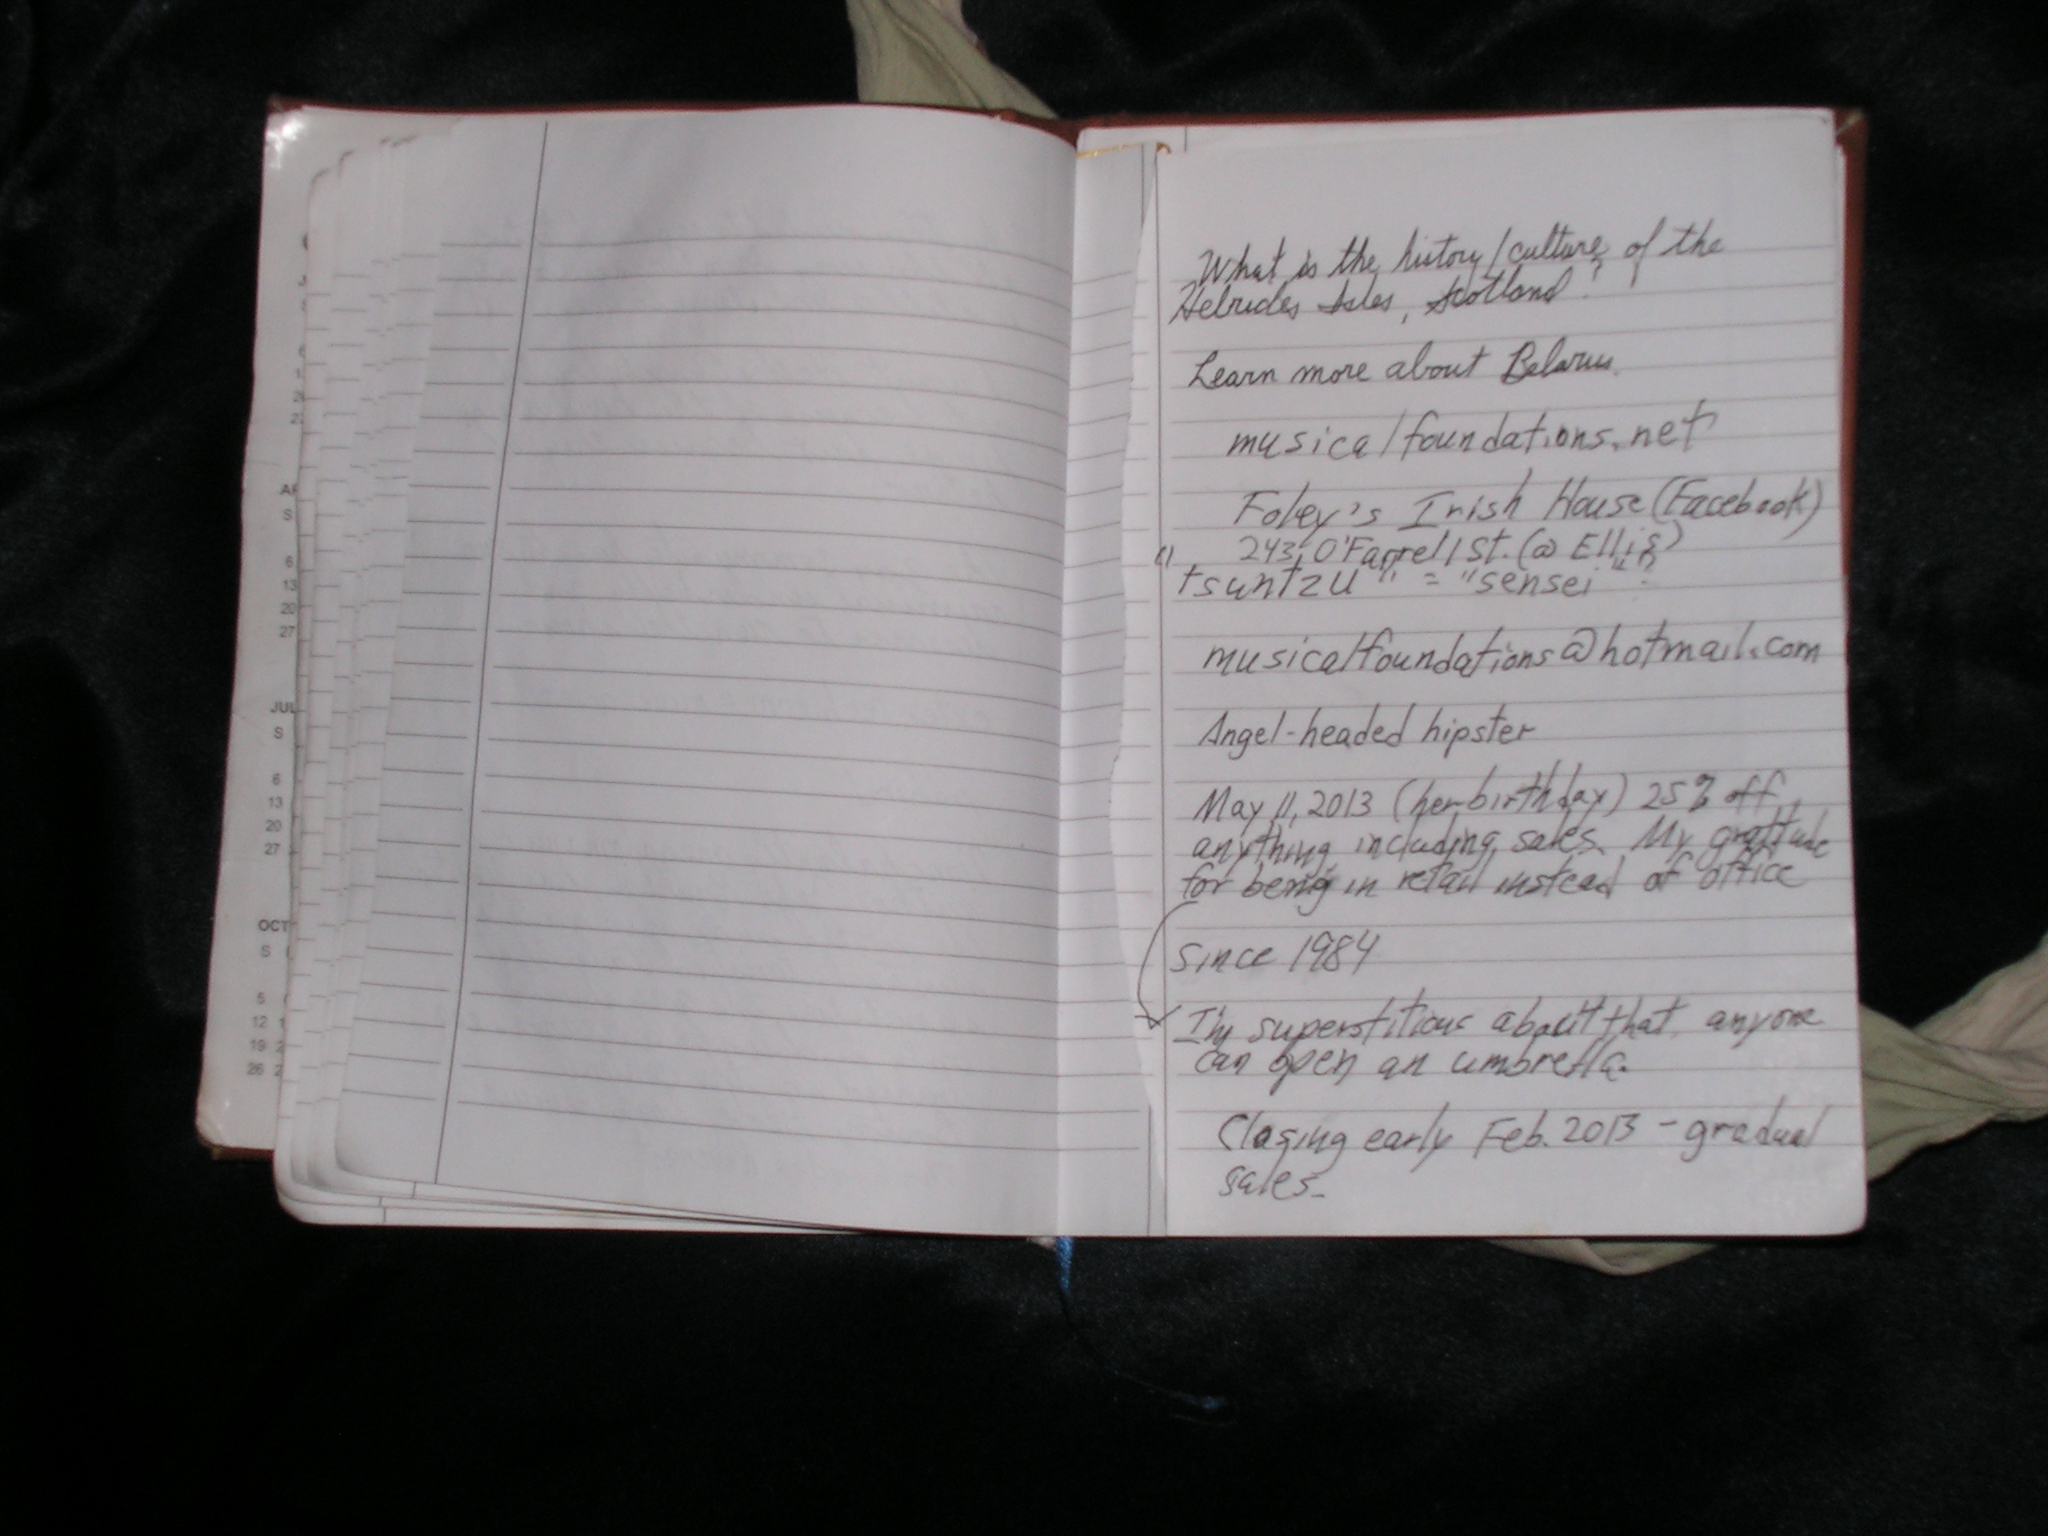 What is the history/culture of the
Hebrides Isles, Scotland?
Learn more about Belarus.
musicalfoundations.net
Foley's Irish House (Facebook)
243 O'Farrell St. (@ Ellis)
"tsuntzu" = "sensei"?
musicalfoundations@hotmail.com
Angel-headed hipster
May 11, 2013 (her birthday) 25% off
anything including sales. My gratitude
for being in retail instead of office
since 1984
I'm superstitious about that, anyone
can open an umbrella.
Closing early Feb. 2013 - gradual
sales.
AP
S
6
13
20
27
JUL
S
6
13
20
27
OCT
S
5
12
19
26